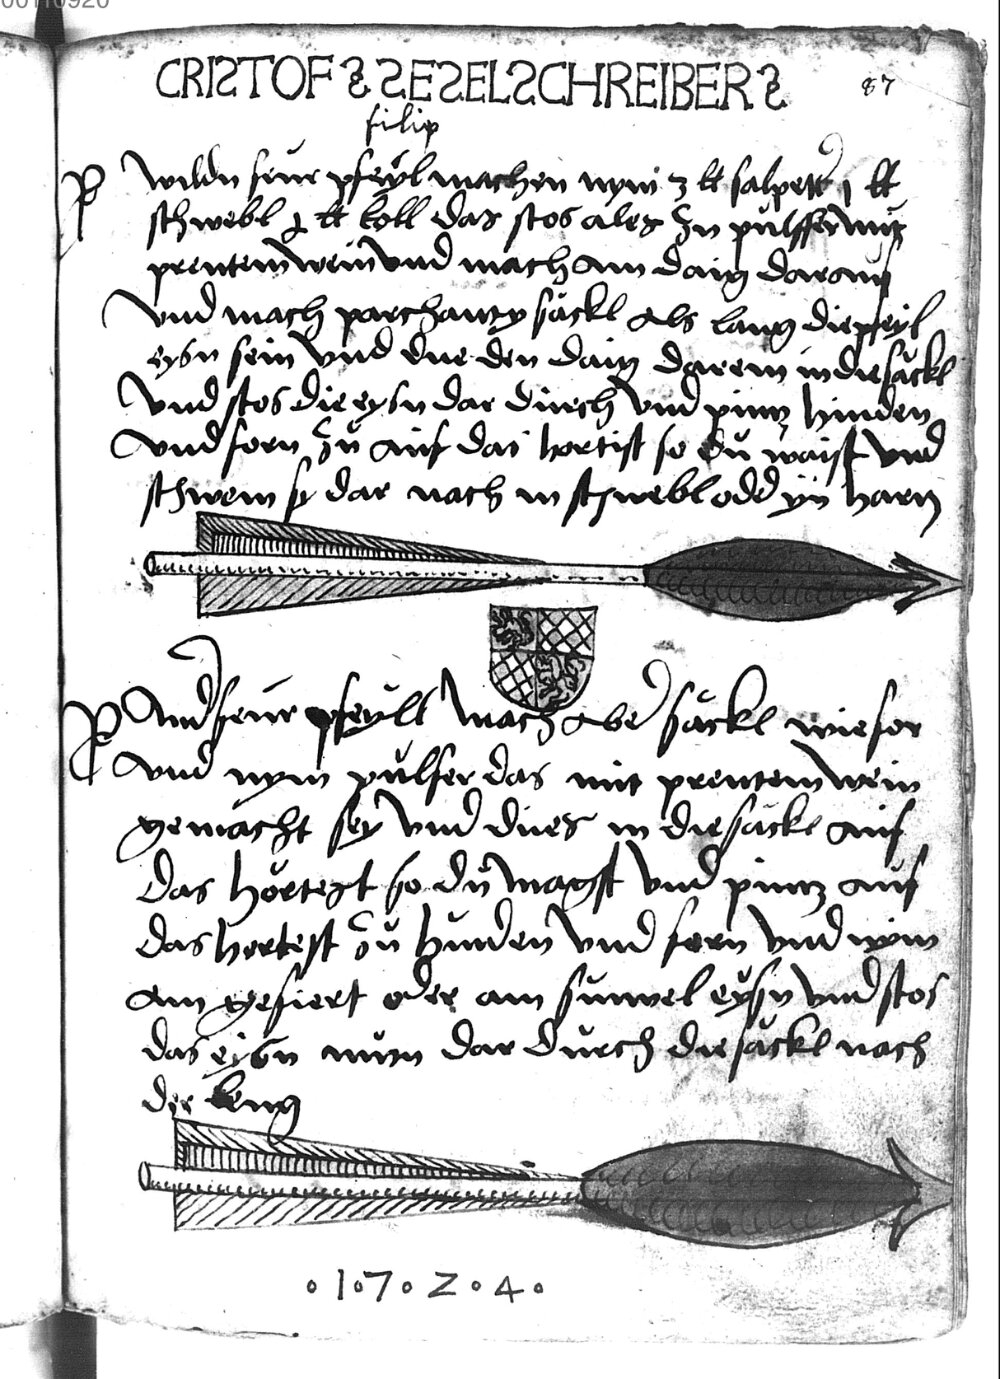 00110920
CRISTOF S SESELSCHREIBER S
87
filip
wildn feur pfeyl machen nym 3 ℔ salpetter 1 ℔
schwebl ℔ koll das stos ales zu pulffer mit
prentem wein und mach ain daig daraus
und mach parchanty säckl als lang die pfeyl
eysn sein und due den daig darein in die säckl
und stos die eysn dar durch und pintz hinden
und forn zu auf das hertist so du waist und
schwem sy dar nach in schwebl oder yn hartz
Ander feur pfeyll mach aber säckl wie for
und nym pulfer das mit prentem wein
gemacht sey und dues in die säckl auf
das hörtest so du magst und pintz auf
das hertest zu hinden und forn und nym
ain gefiert oder ain sinwel eysn und stos
das eysn nun dar durch die säckl nach
der leng
1724